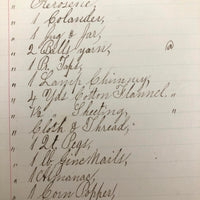 " Kerosene,
" 1 Colander,
" 1 Jug & Jar,
" 2 Balls yarn, @
" 1 Pr Taps,
" 1 Lamp Chimney,
" 4 Yds Cotton Flannel, "
" ½ " Sheeting, "
" Cloth & Thread,
" 1 Qt. Pegs,
" 1 lb. Fine Nails,
" 1 Almanac,
" 1 Corn Popper,